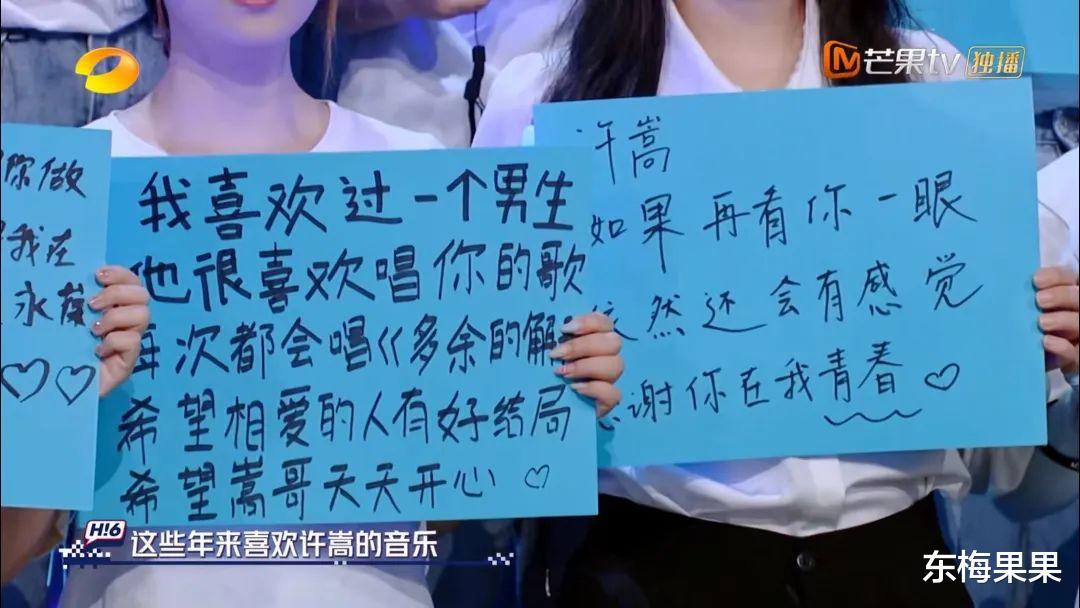 芒果tv 独播
你做
我在
永
我喜欢过一个男生
他很喜欢唱你的歌
每次都会唱《多余的解
希望相爱的人有好结局
希望嵩哥天天开心♡
许嵩
如果再看你一眼
依然还会有感觉
感谢你在我青春♡
H!6
这些年来喜欢许嵩的音乐
东梅果果